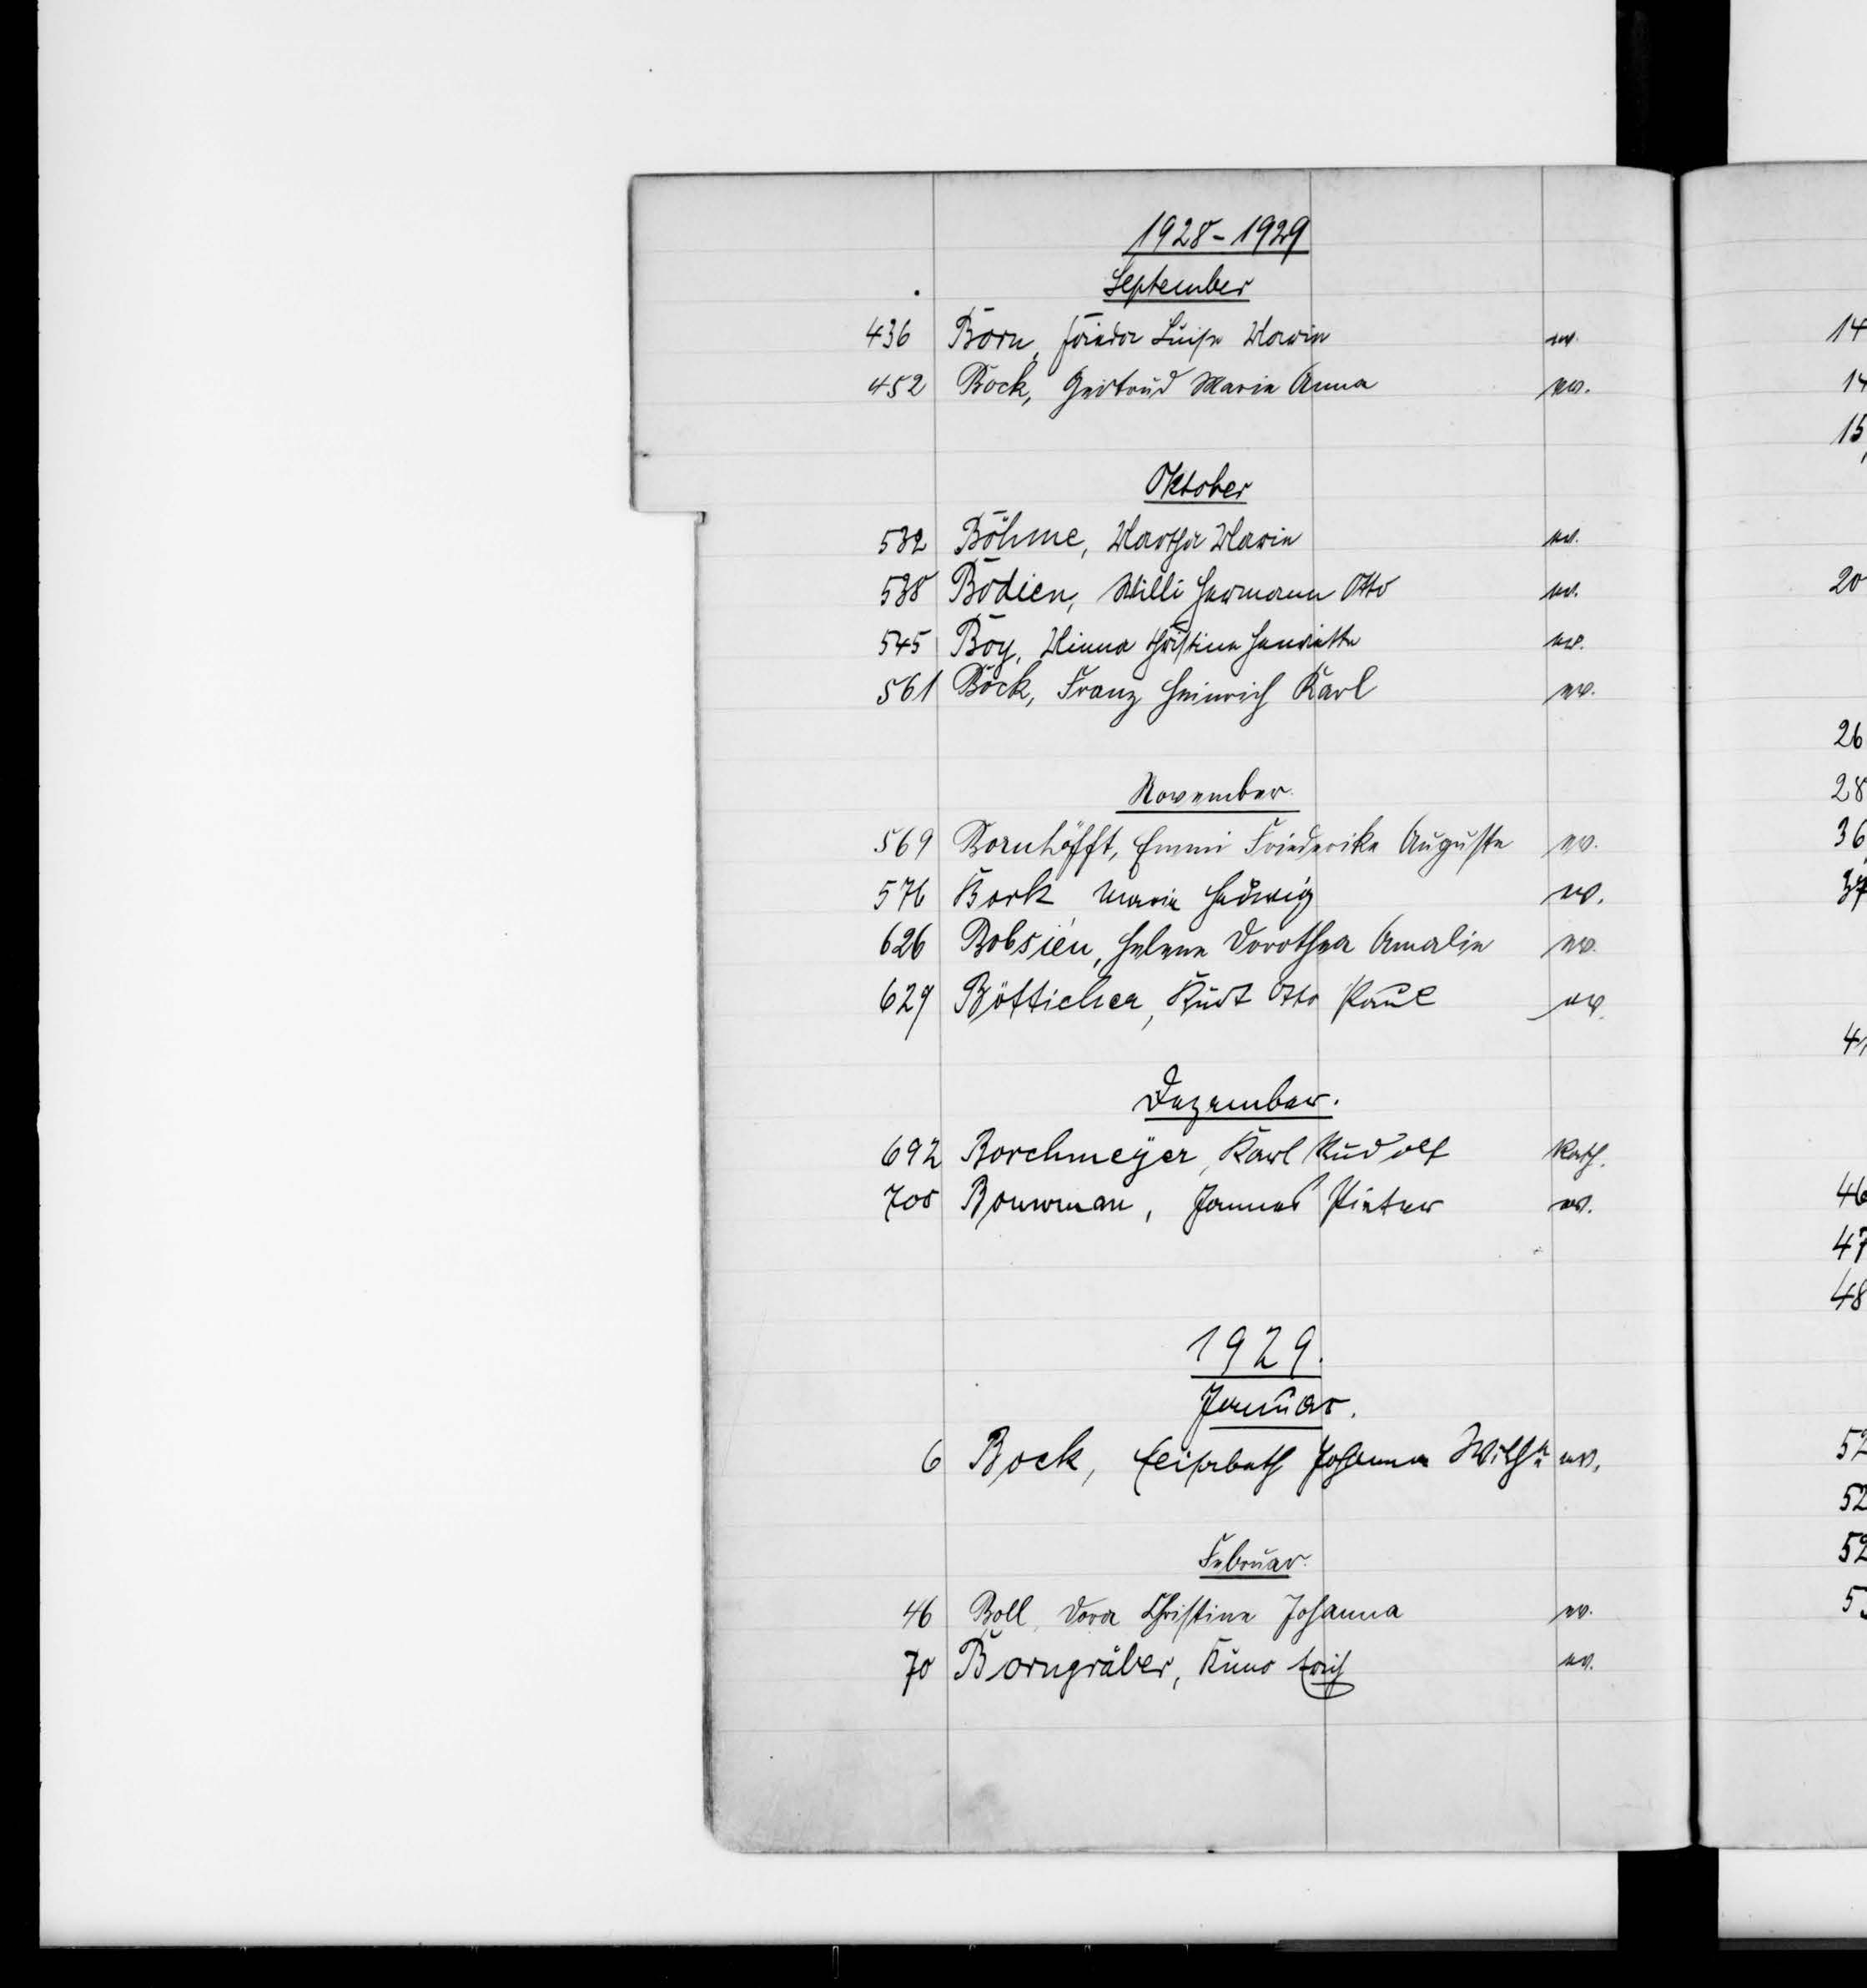 1928-1929
September
436 Born, Frieda Luise Marie ev.
452 Bock, Gertrud Marie Anna ev.
Oktober
532 Böhme, Martha Marie ev.
538 Bodien, Willi Hermann Otto ev.
545 Boy, Minna Christine Henriette ev.
561 Bock, Franz Heinrich Karl ev.
November.
569 Bornhöfft, Emmi Friederike Auguste ev.
576 Bork Marie Hedwig ev.
626 Bobsien, Helene Dorothea Amalie ev.
629 Bötticher, Kurt Otto Paul ev.
Dezember.
692 Borchmeyer, Karl Rudolf Kath.
708 Bouwman, Jannes Pieter ev.
1929.
Januar.
6 Bock, Elisabeth Johanna ev.
Februar.
46 Boll, Dora Christine Johanna ev.
70 Borngräber, Kuno Erich ev.
14
14
15
20
26
28
36
37
4
46
47
48
52
52
52
5